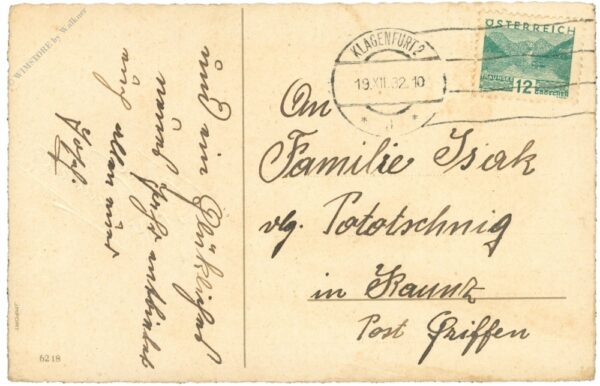 WIMSTORE by Walkner
und ein Glückliches
neues Jahr entbietet
euch allen euer
Josef.
KLAGENFURT 2
19.XII.32.10
* a *
ÖSTERREICH
12 GROSCHEN
An
Familie Isak
vlg. Pototschnig
in Kaunz
Post Griffen
6218